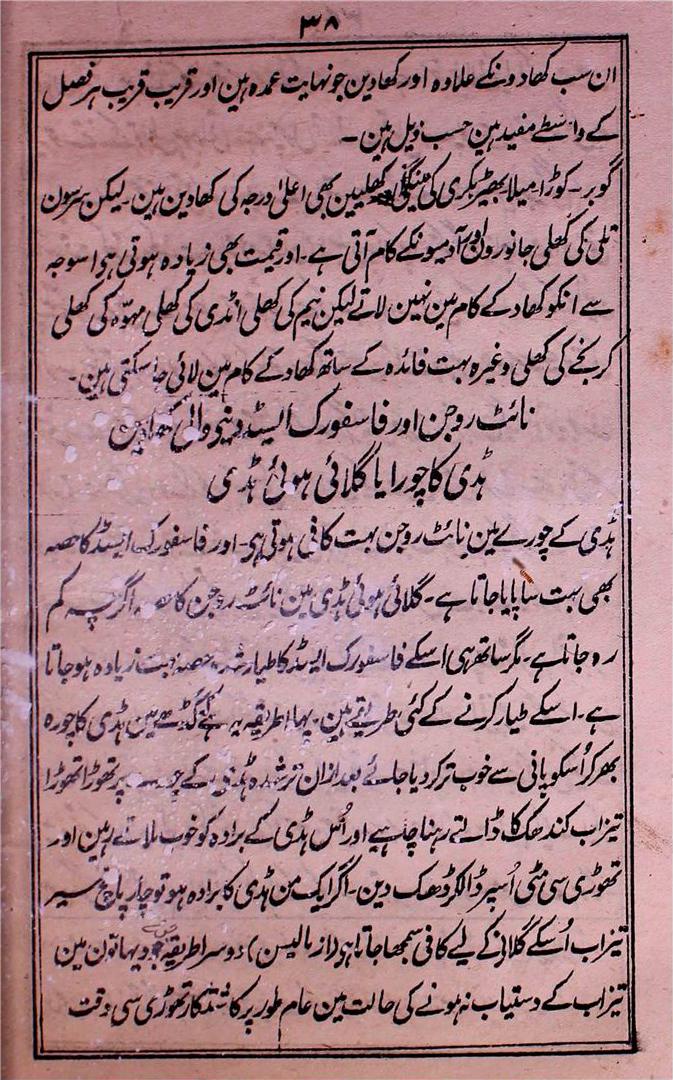 ۳۸
ان سب کھادونکے علاوہ اور کھادین جو نہایت عمدہ ہین اور قریب قریب ہر فصل
کے واسطے مفید ہین حسب ذیل ہین ـ
گوبر ـ کوڑا میلا بھیڑ بکری کی مینگنی اور کھلیین بھی اعلیٰ درجہ کی کھادین ہین ـ لیکن سرسون
تلی کی کھلی جانورون اور آدمیونکے کام آتی ہے ـ اور قیمت بھی زیادہ ہوتی ہی اسوجہ
سے انکو کھاد کے کام مین نہین لاتے لیکن نیم کی کھلی انڈی کی کھلی مہوّہ کی کھلی
کرنجے کی کھلی وغیرہ بہت فائدہ کے ساتھ کھاد کے کام مین لائی جا سکتی ہین ـ
نائٹ روجن اور فاسفورک ایسڈ دینیوالی کھادین
ہڈی کا چورا یا گلائی ہوئی ہڈی
ہڈی کے چورے مین نائٹ روجن بہت کافی ہوتی ہی ـ اور فاسفورک ایسڈ کا حصہ
بھی بہت سا پایا جاتا ہے ـ گلائی ہوئی ہڈی مین نائٹ روجن کا حصہ اگرچہ کم
رہ جاتا ہے ـ مگر ساتھ ہی اسکے فاسفورک ایسڈ کا طیار شدہ حصہ بہت زیادہ ہو جاتا
ہے ـ اسکے طیار کرنے کے کئی طریقے ہین ـ پہلا طریقہ یہ ہے کہ گڈھے مین ہڈی کا چورہ
بھر کر اُسکو پانی سے خوب تر کر دیا جائے بعد ازان تر شدہ ہڈی کے چورے پر تھوڑا تھوڑا
تیزاب گندھک کا ڈالتے رہنا چاہیے اور اُس ہڈی کے برادہ کو خوب ملاتے رہین اور
تھوڑی سی مٹی اُسپر ڈالکر ڈھک دین ـ اگر ایک من ہڈی کا برادہ ہو تو چار پانچ سیر
تیزاب اُسکے گلانے کے لیے کافی سمجھا جاتا ہی (از مالیسن) دوسرا طریقہ جو دیہاتون مین
تیزاب کے دستیاب نہ ہونے کی حالت مین عام طور پر کاشتکار تھوڑی سی دقت